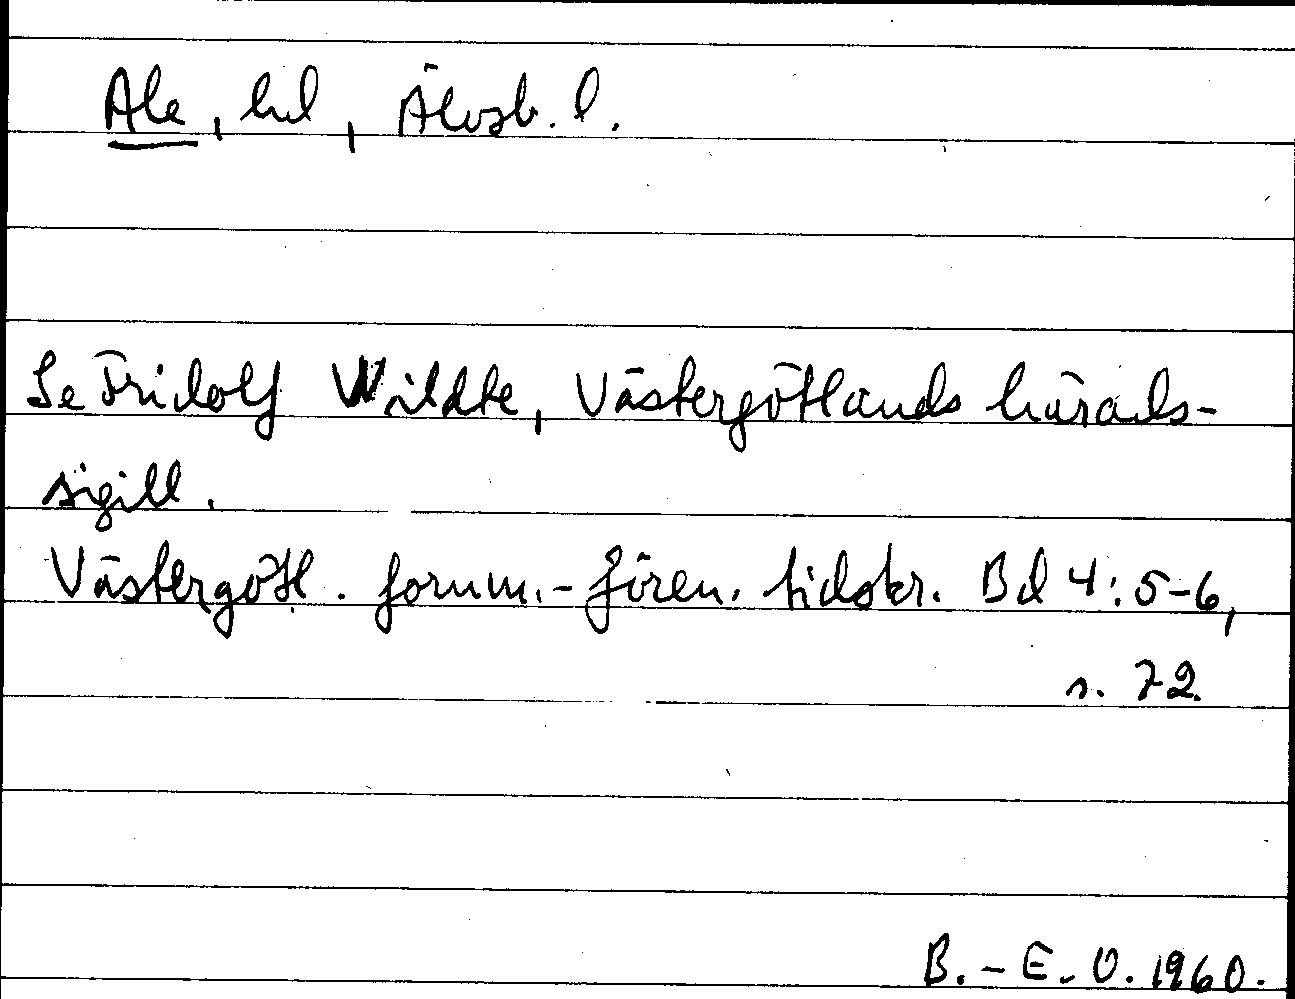 Ale, hd, Älvsb. l.
Se Fridolf Wildte, Västergötlands härads-
sigill.
Västergötl. fornm.-fören. tidskr. Bd 4:5-6,
s. 72.
B.-E. O. 1960.